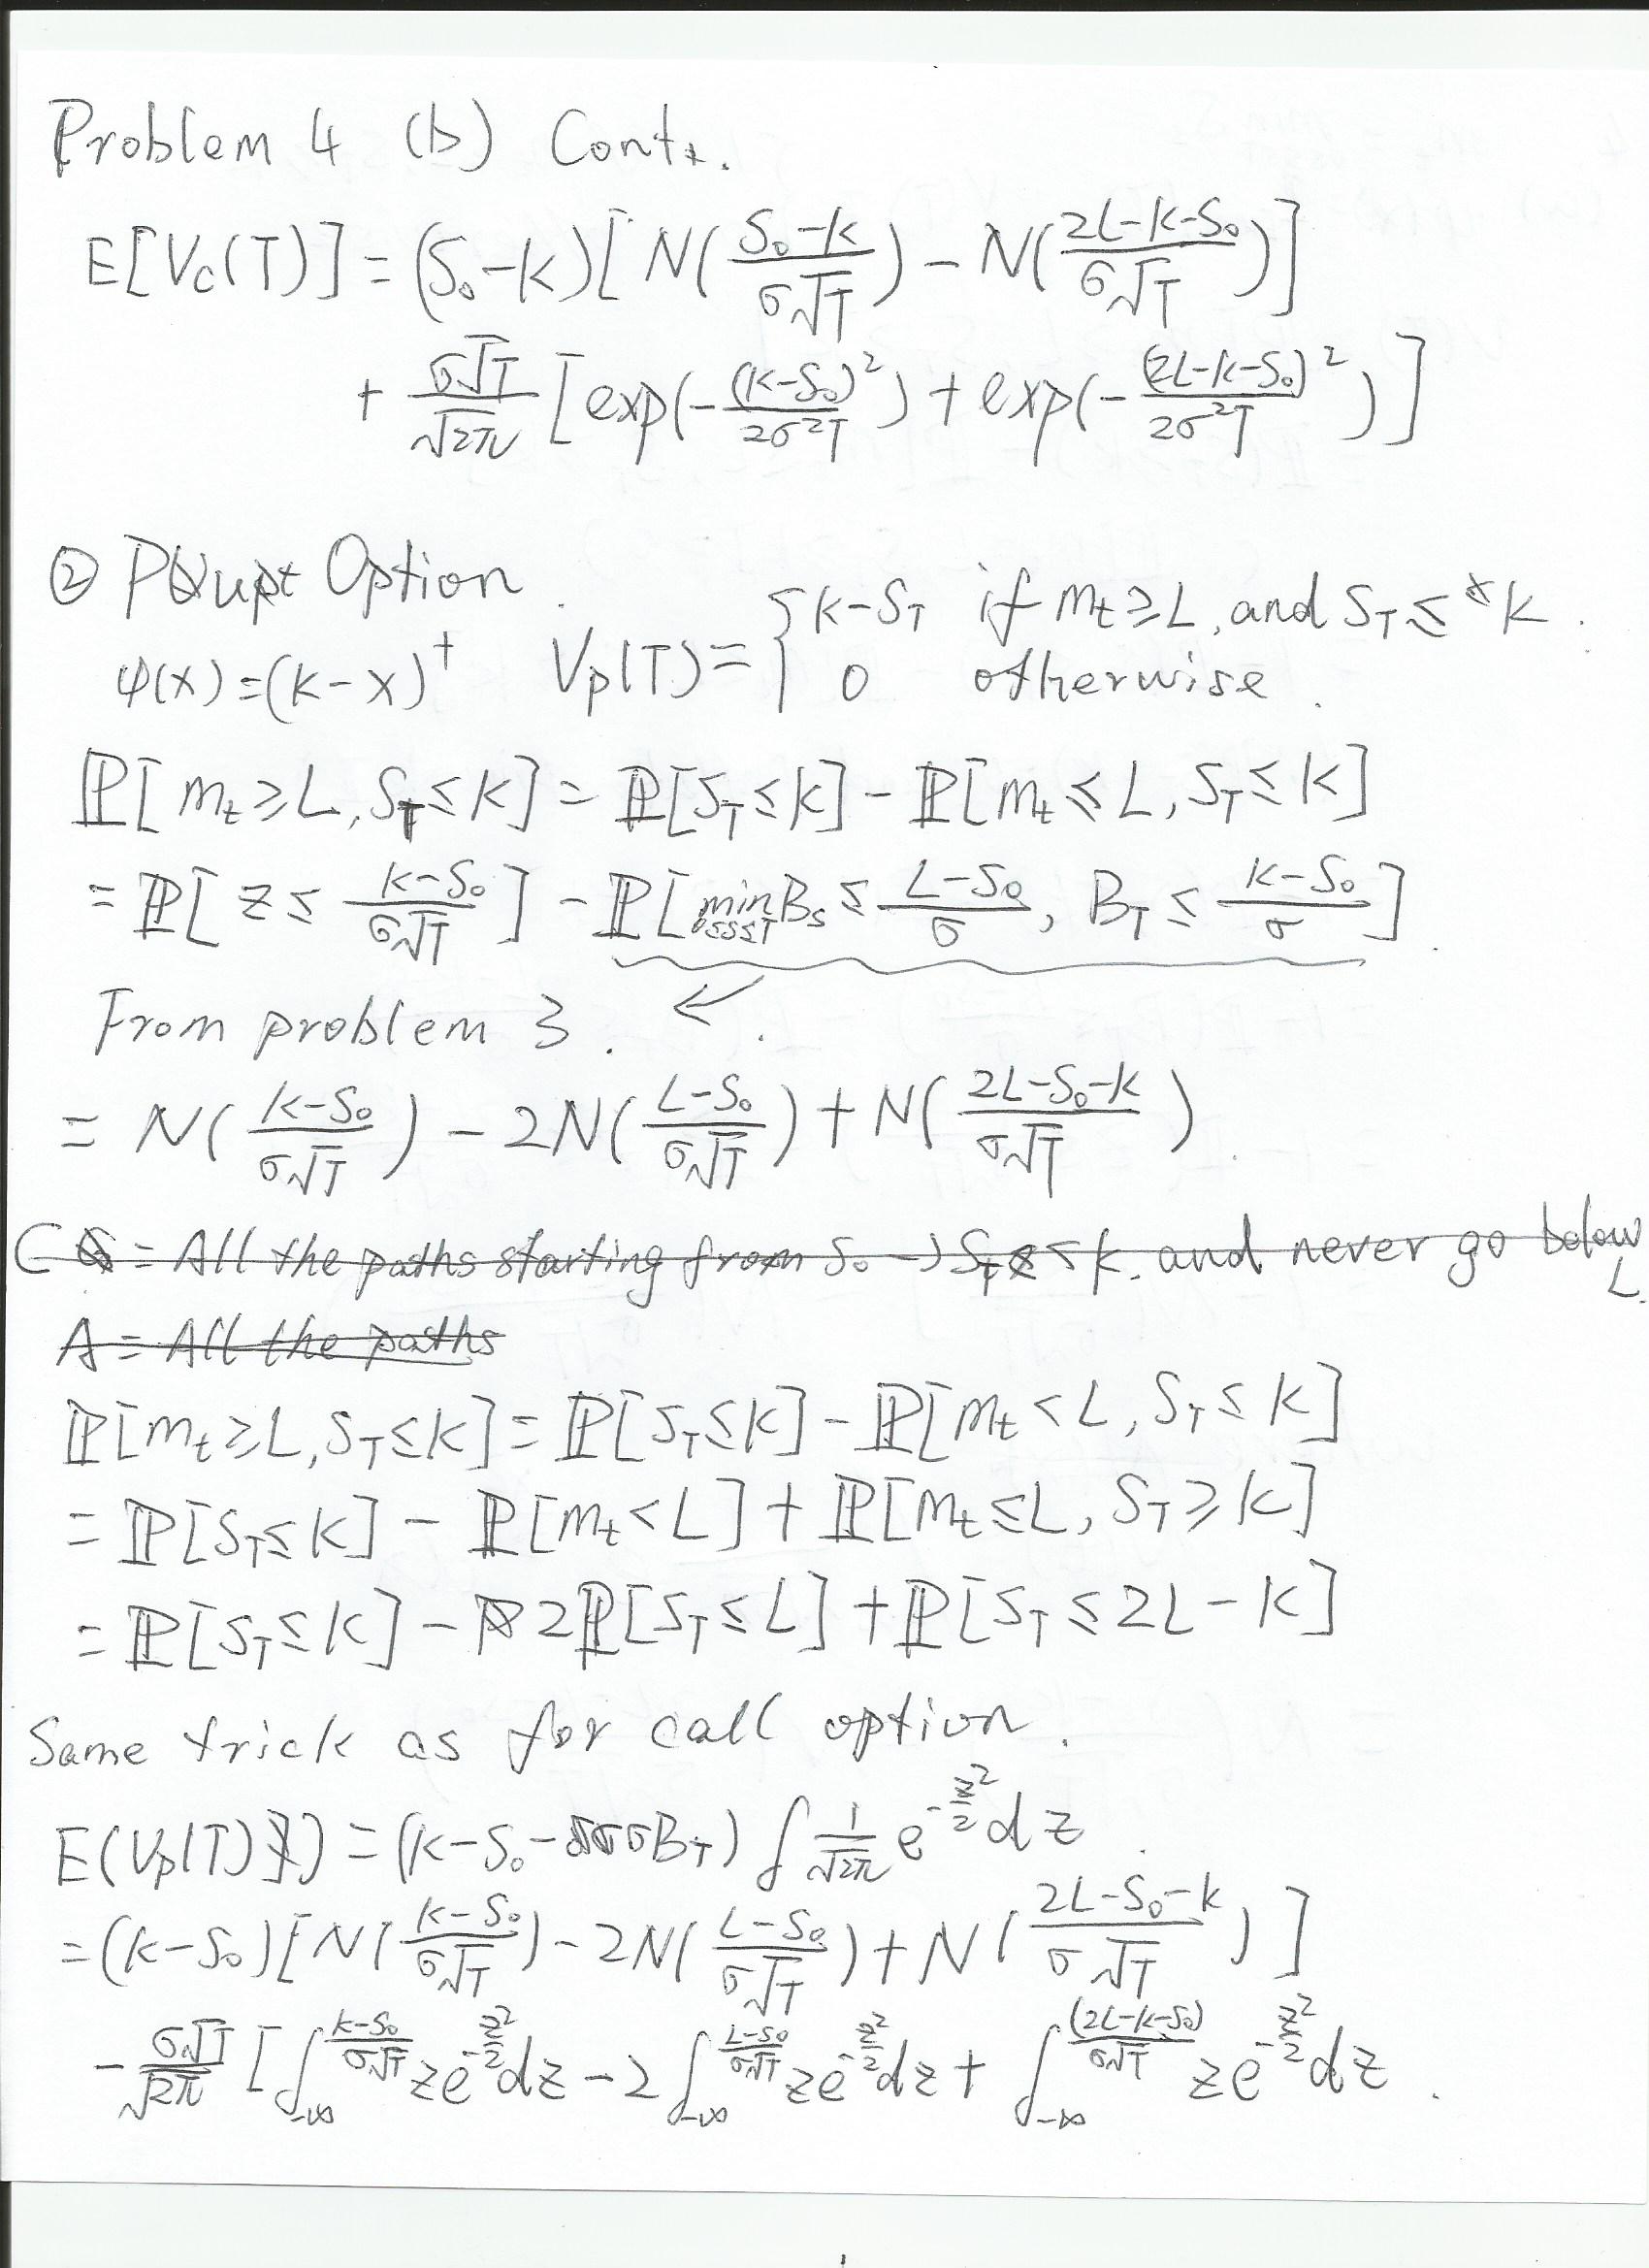 Problem 4 (b) Cont.
E[Vc(T)] = (S₀-K)[N((S₀-K)/(σ√T)) - N((2L-K-S₀)/(σ√T))]
+ σ√T/√2π [exp(-(K-S₀)²/(2σ²T)) + exp(-(2L-K-S₀)²/(2σ²T))]
② Put Option.
ψ(x)=(K-x)⁺ Vp(T)= { K-S_T if m_t ≥ L, and S_T ≤ K.
0 otherwise.
ℙ[m_t ≥ L, S_T ≤ K] = ℙ[S_T ≤ K] - ℙ[m_t ≤ L, S_T ≤ K]
= ℙ[z ≤ (K-S₀)/(σ√T)] - ℙ[min_{0≤s≤T} B_s ≤ (L-S₀)/σ, B_T ≤ (K-S₀)/σ].
From problem 3. ↙
= N((K-S₀)/(σ√T)) - 2N((L-S₀)/(σ√T)) + N((2L-S₀-K)/(σ√T)).
C = All the paths starting from S₀ → S_T ≤ K. and never go below L.
A = All the paths
ℙ[m_t ≥ L, S_T ≤ K] = ℙ[S_T ≤ K] - ℙ[m_t < L, S_T ≤ K]
= ℙ[S_T ≤ K] - ℙ[m_t < L] + ℙ[m_t ≤ L, S_T ≥ K]
= ℙ[S_T ≤ K] - 2ℙ[S_T ≤ L] + ℙ[S_T ≤ 2L-K]
Same trick as for call option.
E(Vp(T)) = (K-S₀-σB_T) ∫ 1/√2π e^{-z²/2} dz.
= (K-S₀)[N((K-S₀)/(σ√T)) - 2N((L-S₀)/(σ√T)) + N((2L-S₀-K)/(σ√T))]
- σ√T/√2π [∫_{-∞}^{(K-S₀)/(σ√T)} ze^{-z²/2}dz - 2∫_{-∞}^{(L-S₀)/(σ√T)} ze^{-z²/2}dz + ∫_{-∞}^{(2L-K-S₀)/(σ√T)} ze^{-z²/2}dz.